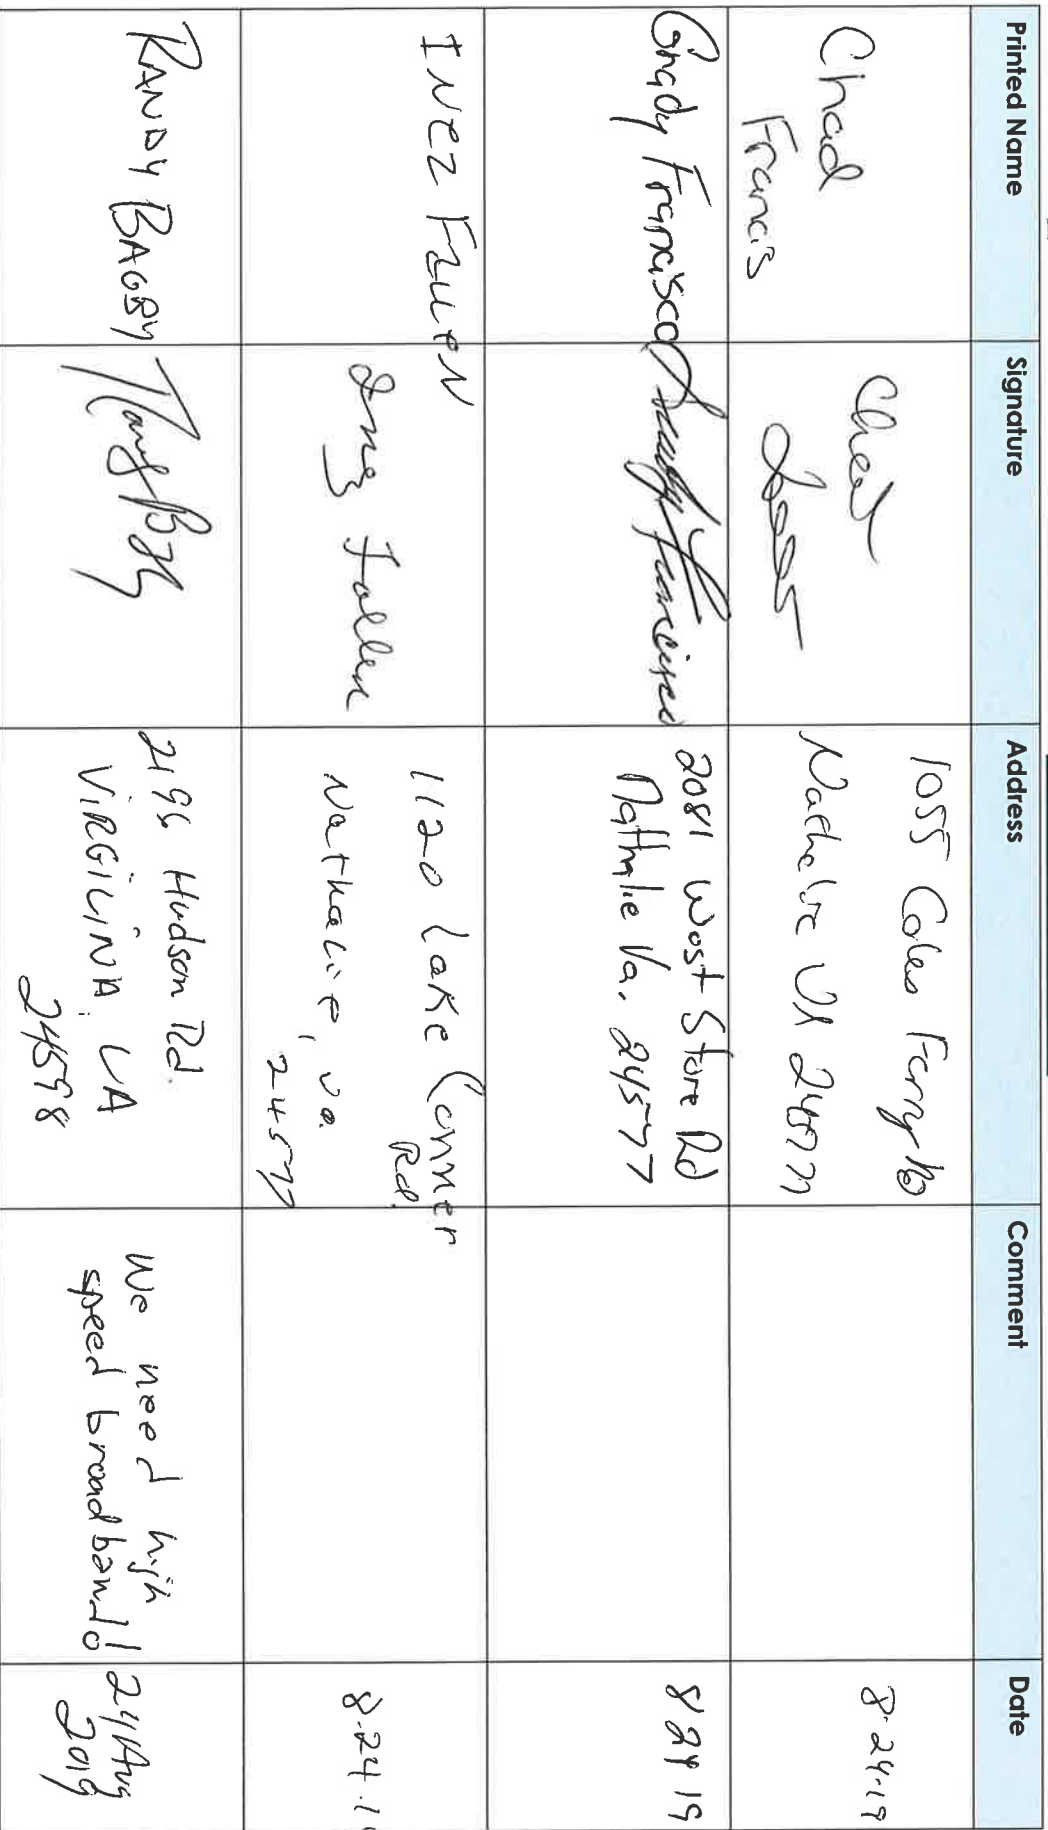 Printed Name Signature Address Comment Date
Chad
Francis
1055 Coles Ferry Rd
Nathalie VA 24577
8-24-19
Grady Francisco
2081 West Store Rd
Nathalie Va. 24577
8 24 19
INez
Inez Fallen
1120 Lake Conner
Rd.
Nathalie, va.
24577
8-24-1
RANDY BAGBY
2196 Hudson Rd.
ViRGiLiNA, VA
24598
We need high
speed broadband!
24 Aug
2019